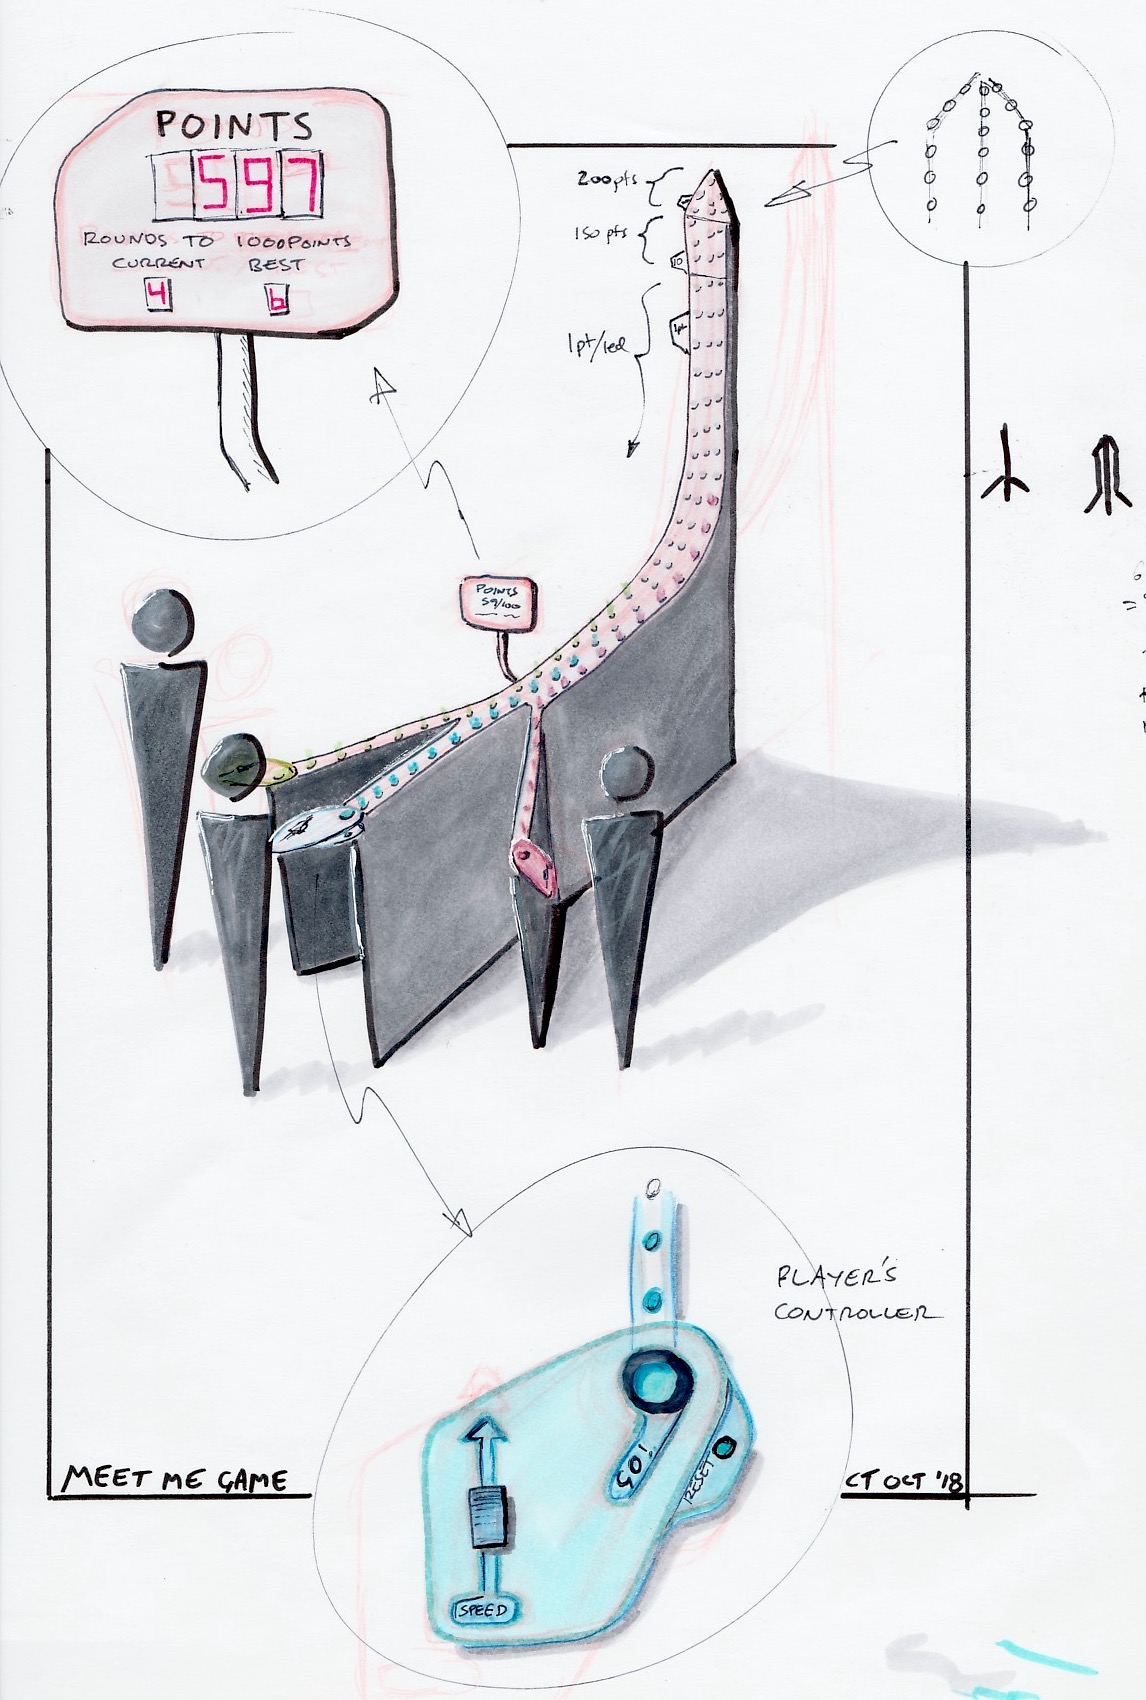 POINTS
597
ROUNDS TO 1000POINTS
CURRENT BEST
4 6
200pts
150 pts
10
1pt/led
1pt
POINTS
59/100
PLAYER'S
CONTROLLER
GO!
RESET
SPEED
MEET ME GAME
CT OCT '18